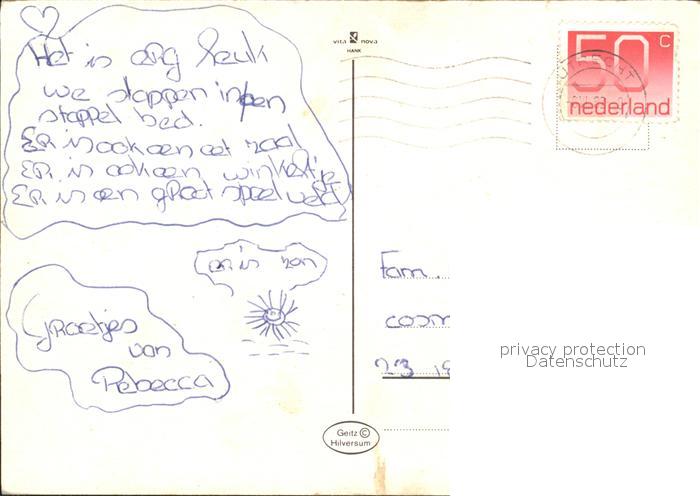 Het is erg leuk
we slappen in een
stappel bed.
ER is ook een eet zaal
ER is ook een winkeltje
ER is een groot speel veld
er is zon
Groetjes
van
Rebecca
vita nova
HANK
50 c
nederland
Fam.
cosm
23 19
privacy protection
Datenschutz
Geitz ©
Hilversum